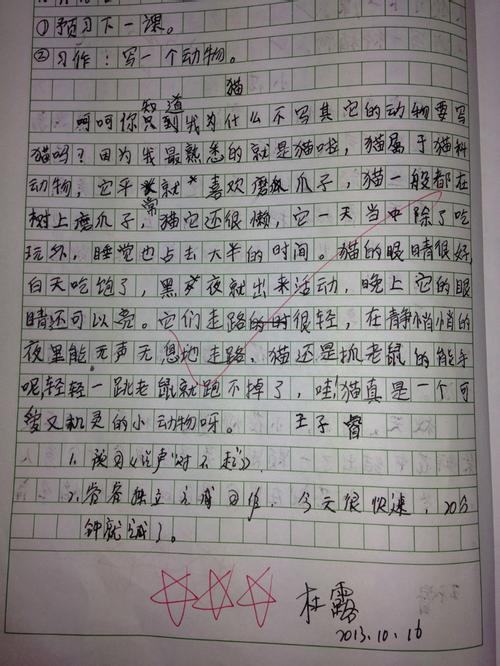 ①预习下一课。
②习作：写一个动物。
猫
知道
呵呵你只到我为什么不写其它的动物要写
猫吗？因为我最熟悉的就是猫啦，猫属于猫科
动物，它平常就喜欢磨爪子，猫一般都在
树上磨爪子，猫它还很懒，它一天当中除了吃
玩外，睡觉也占去大半的时间。猫的眼睛很好，
白天吃饱了，黑夜就出来活动，晚上它的眼
睛还可以亮。它们走路的时很轻，在静悄悄的
夜里能无声无息地走路，猫还是抓老鼠的能手
呢，轻轻一跳老鼠就跑不掉了，哇！猫真是一个可
爱又机灵的小动物呀。 王子督
1. 预习《说声"对不起"》
2. 爸爸独立完成回作，今天很快速，20分
钟就完成了。
杜露
2013.10.16